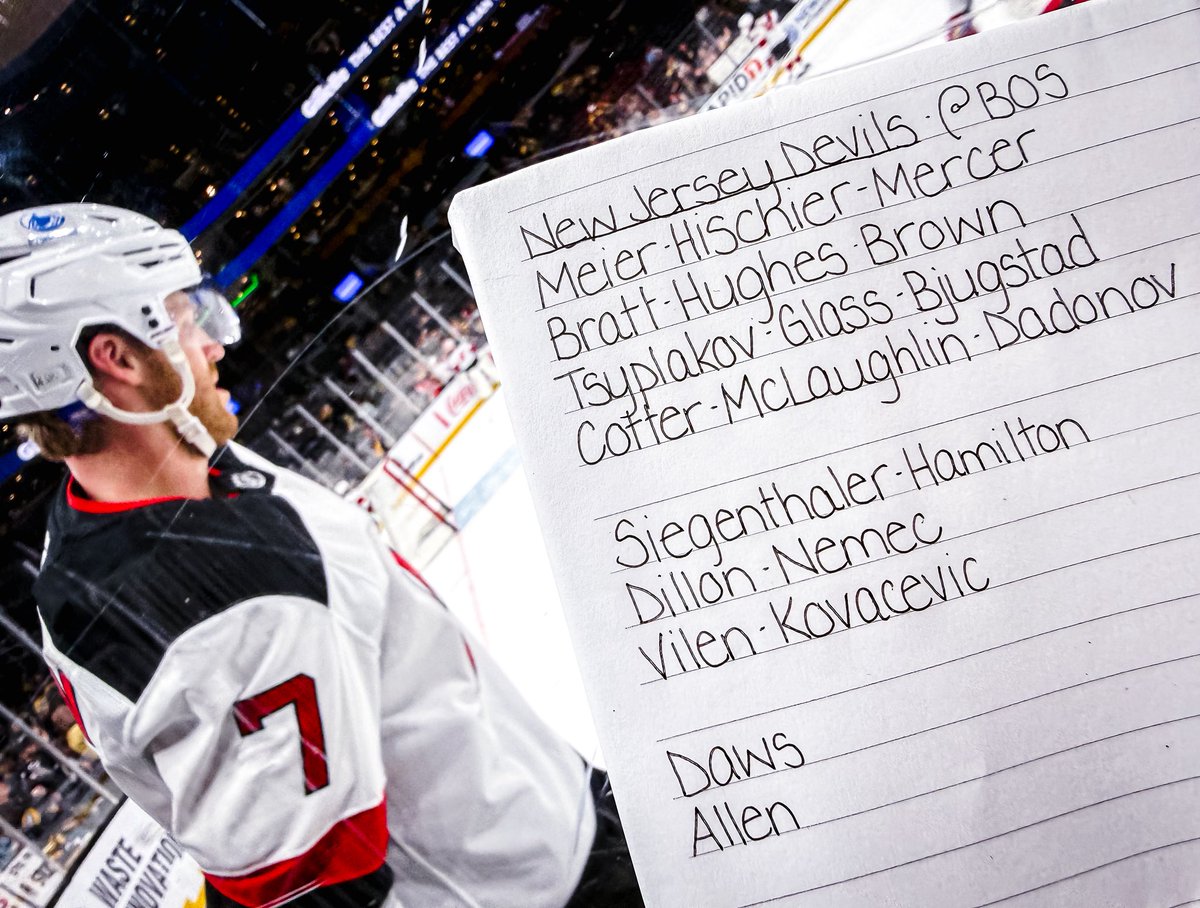 Gillette THE BEST A MAN
Gillette BEST A MAN
RAPID
New Jersey Devils - @BOS
Meier-Hischier-Mercer
Bratt-Hughes-Brown
Tsyplakov-Glass-Bjugstad
Cotter-McLaughlin-Dadonov
Siegenthaler-Hamilton
Dillon-Nemec
Vilen-Kovacevic
Daws
Allen
7
WASTE